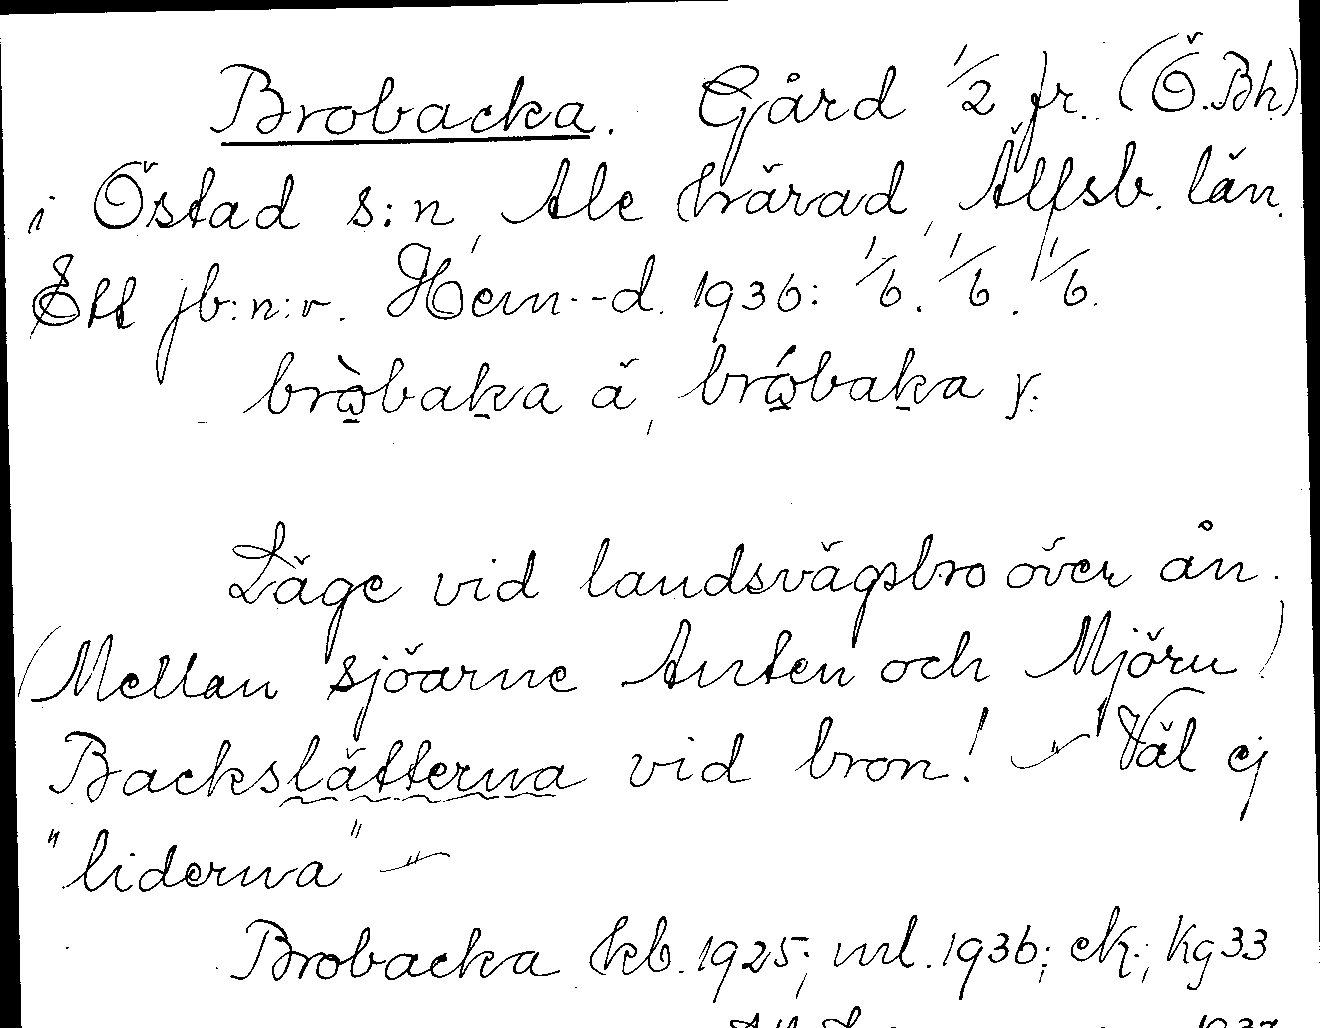 Brobacka. Gård 1/2 fr. (Ö.Bh)
i Östad s:n, Ale härad, Älfsb. län.
Ett jb:n:r. Hem--d. 1936: 1/6. 1/6. 1/6.
bròbaka ä, bróbaka y.
Läge vid landsvägsbro över ån.
(Mellan sjöarne Anten och Mjörn)
Backslätterna vid bron! -"- Väl ej
"liderna" -"-
Brobacka kb. 1925; ml. 1936; ek.; Kg 33
1937